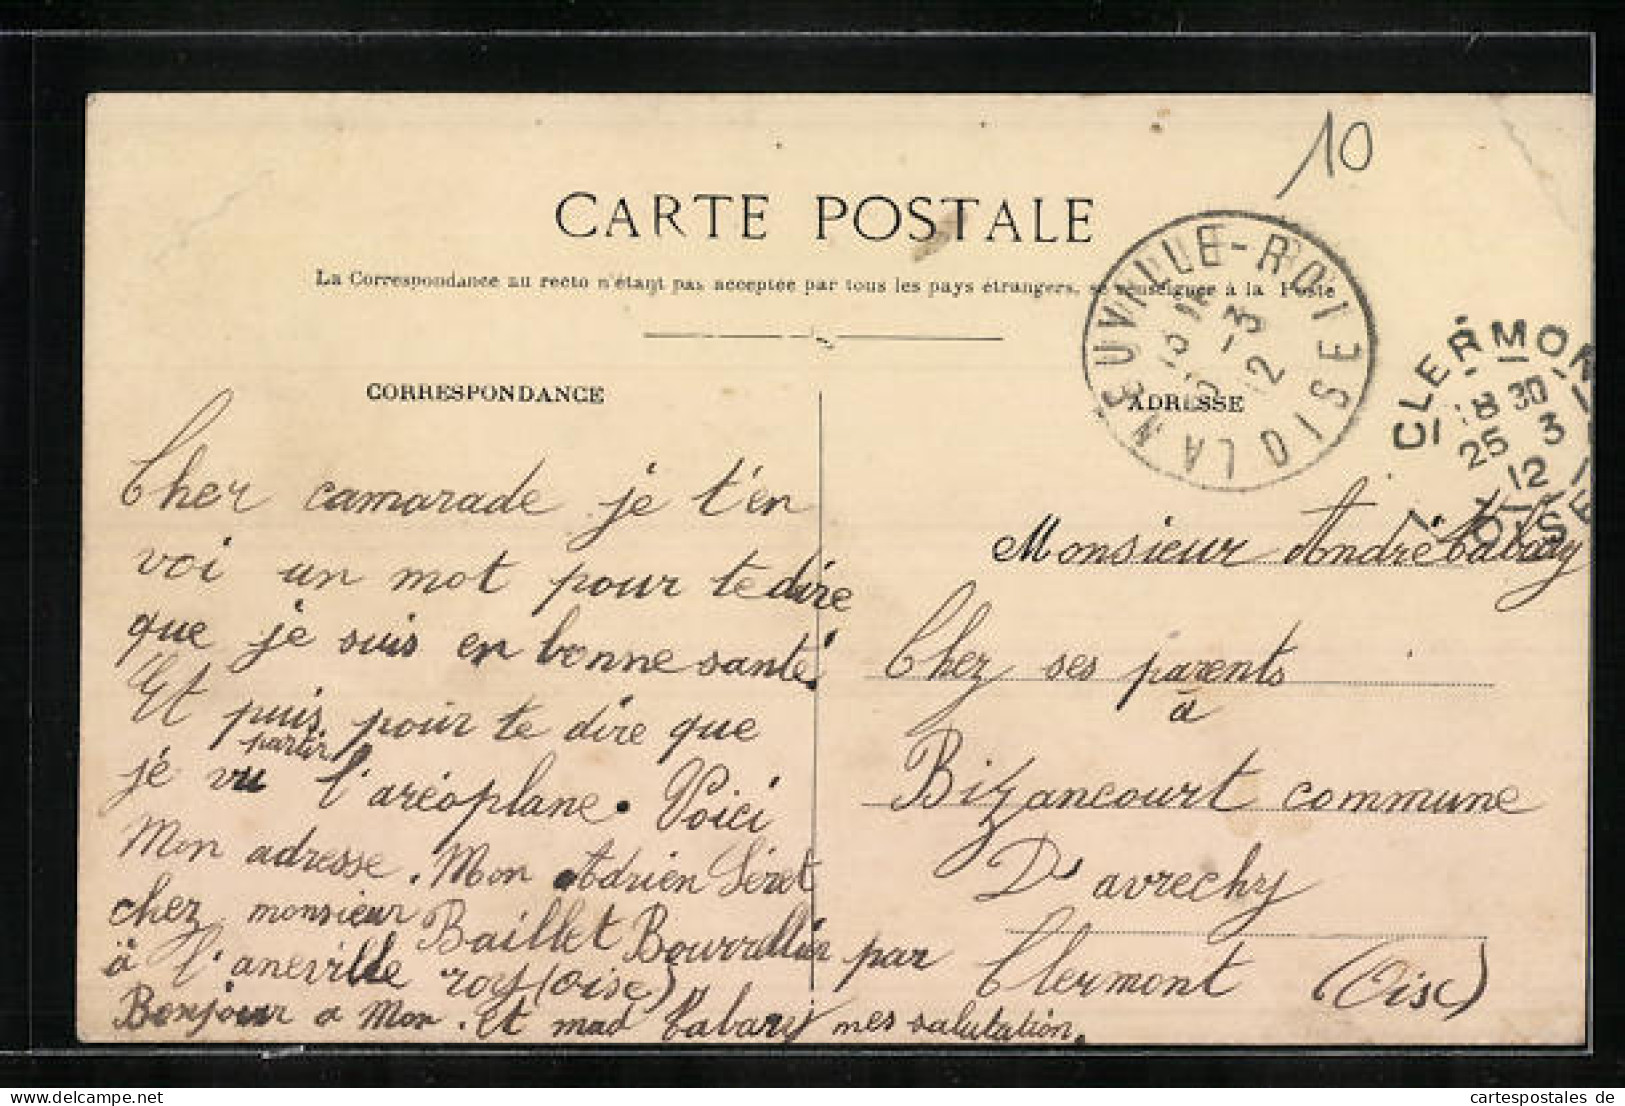 10
CARTE POSTALE
La Correspondance au recto n'étant pas acceptée par tous les pays étrangers, se renseigner à la Poste
LANEUVILLE-ROI OISE
-3
12
CLERMON
18 30
25 3
12
OISE
CORRESPONDANCE
Cher camarade je t'en
voi un mot pour te dire
que je suis en bonne santé
Et puis pour te dire que
partir
jé vu l'aréoplane. Voici
Mon adresse. Mon Adrien Séret
chez monsieur Baillet Bourrellier
à l'aneville roy (Oise)
Bonjour a Mon. Et mad Tabary mes salutation.
ADRESSE
Monsieur André Tabary
Chez ses parents
à
Bizancourt commune
D'avrechy
par Clermont (Oise)
cartespostales de